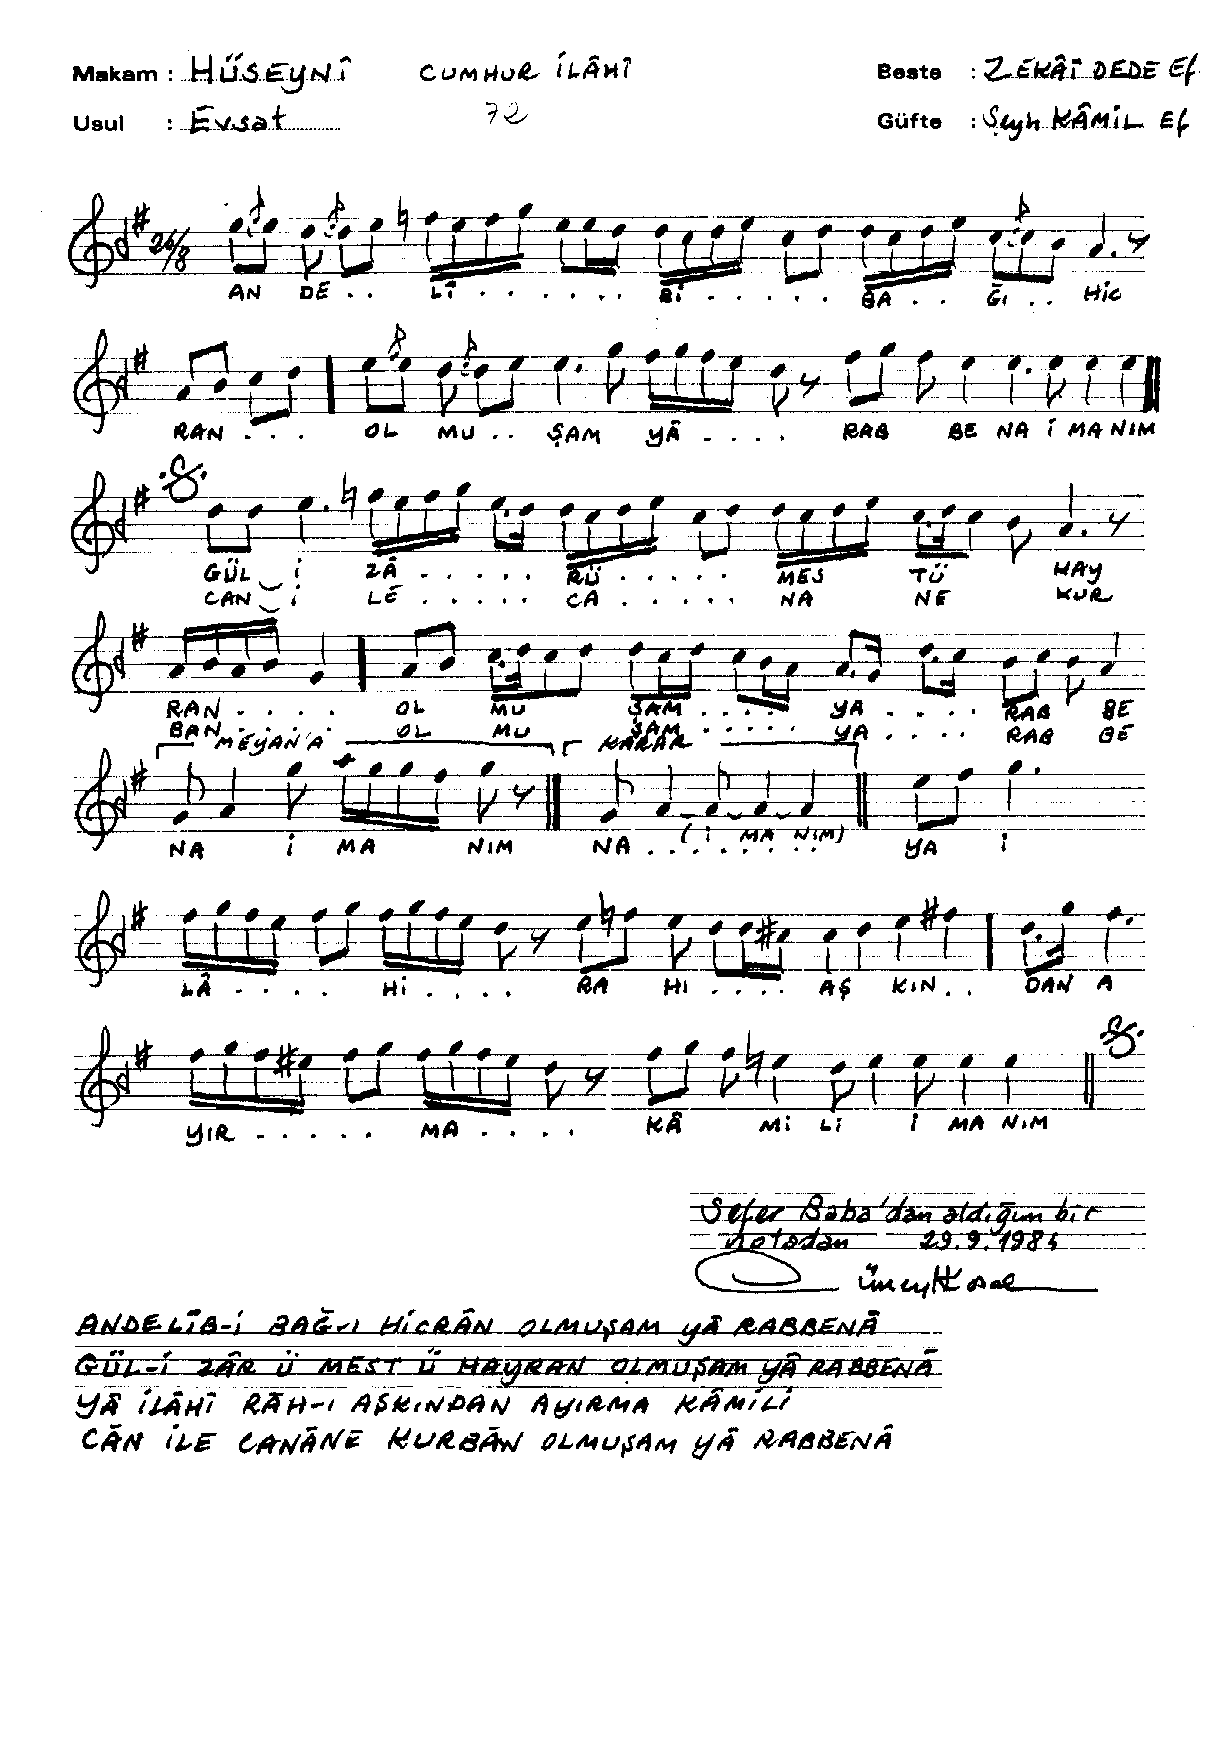 Makam : HÜSEYNÎ CUMHUR İLÂHÎ Beste : ZEKÂÎ DEDE Ef
Usul : Evsat 72 Güfte : Şeyh KÂMİL Ef
26/8
AN DE . . LÎ . . . . . . Bİ . . . . . BA . . Ğı . . HİC
RAN . . . OL MU . . ŞAM YÂ . . . . RAB BE NA İ MA NIM
GÜL İ ZÂ . . . . . RÜ . . . . . MES TÜ HAY
CAN İ LE . . . . . CA . . . . . NA NE KUR
RAN . . . . OL MU ŞAM . . . . YA . . . . RAB BE
BAN . . . . OL MU ŞAM . . . . . YA . . . . RAB BE
MEYAN'A KARAR
NA İ MA NIM NA . . (İ MA NIM) YA İ
LÂ . . . . Hİ . . . . RA HI . . . . AŞ KIN . . DAN A
YIR . . . . . MA . . . . KÂ Mİ Lİ İ MA NIM
Sefer Baba'dan aldığım bir
notadan 29.9.198
ANDELÎB-İ BAĞ-I HİCRÂN OLMUŞAM YÂ RABBENÂ
GÜL-İ ZÂR Ü MEST Ü HAYRAN OLMUŞAM YÂ RABBENÂ
YÂ İLÂHÎ RÂH-I AŞKINDAN AYIRMA KÂMİLİ
CÂN İLE CANÂNE KURBÂN OLMUŞAM YÂ RABBENÂ